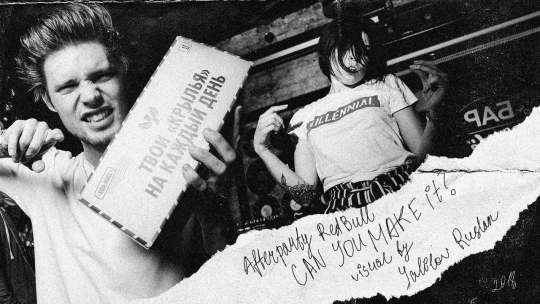 ТВОИ «КРЫЛЬЯ»
НА КАЖДЫЙ ДЕНЬ
MILLENNIAL
БАР
Afterparty RedBull
CAN YOU MAKE IT?
visual by
Ruslan
2018